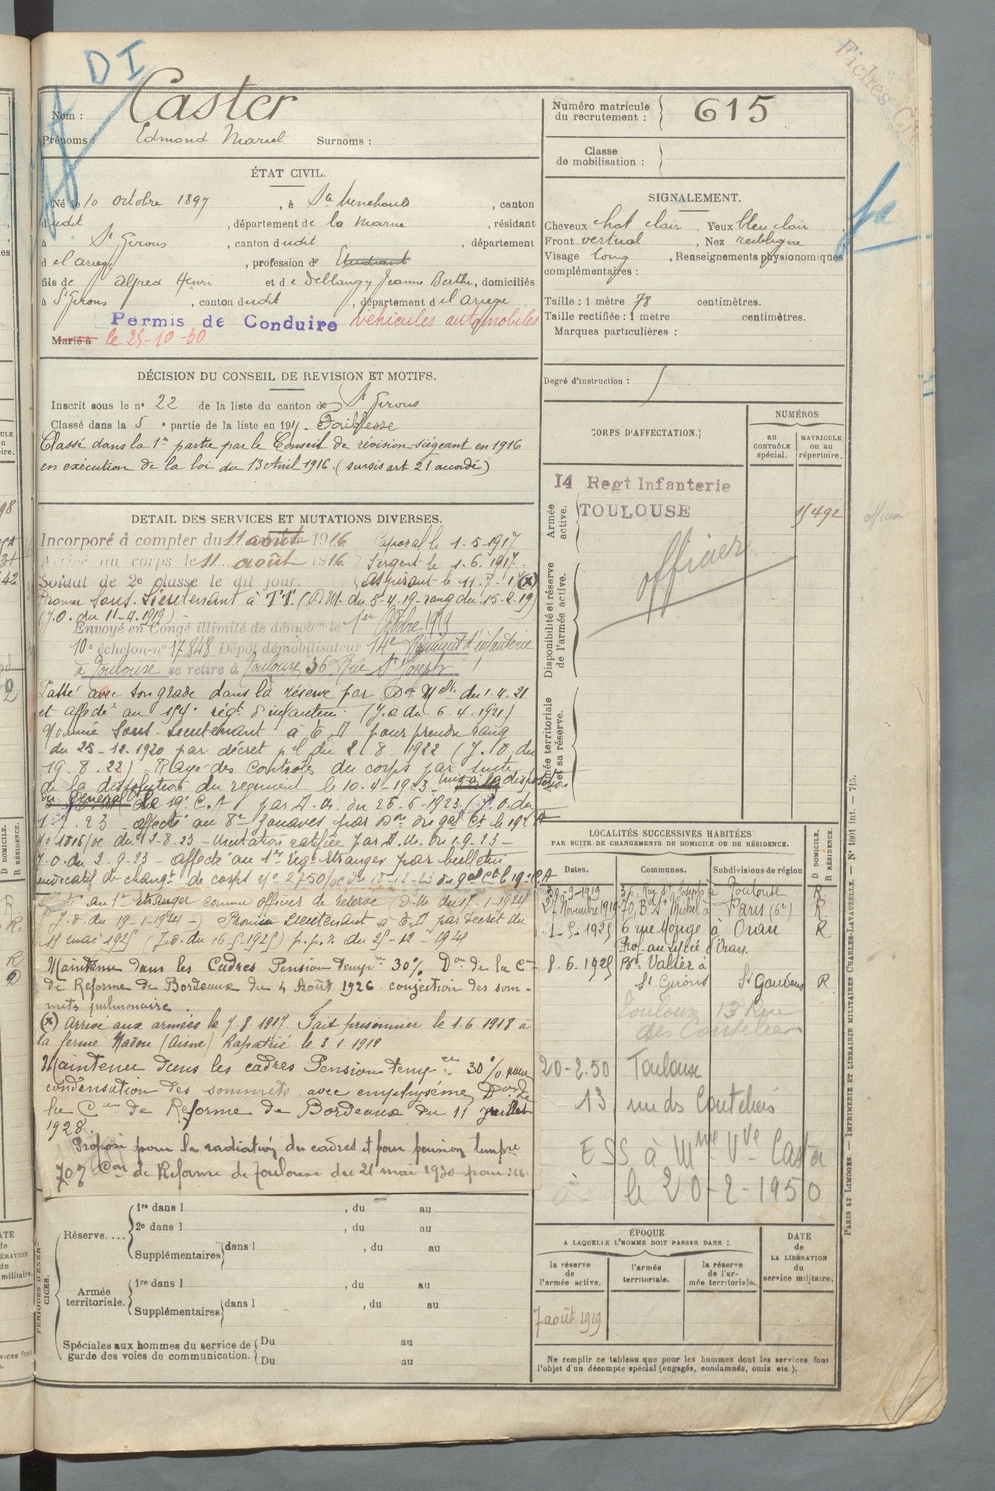 DI
Fiches Cré
Nom : Caster
Prénoms : Edmond Marcel Surnoms :
Numéro matricule du recrutement : 615
Classe de mobilisation :
ÉTAT CIVIL.
Né le 10 octobre 1897, à Ste Menehould, canton
dudit, département de la Marne, résidant
à St Girons, canton dudit, département
d el'ariège, profession de Etudiant
fils de Alfred Henri et de Deblangy Jeanne Berthe, domiciliés
à St Girons, canton dudit, département d el'ariège
Permis de Conduire véhicules automobiles
Marié à le 25-10-30
SIGNALEMENT.
Cheveux chat clair, Yeux bleu clair
Front vertical, Nez rectiligne
Visage long, Renseignements physionomiques
complémentaires :
Taille : 1 mètre 78 centimètres.
Taille rectifiée : 1 mètre centimètres.
Marques particulières :
Degré d'instruction :
DÉCISION DU CONSEIL DE REVISION ET MOTIFS.
Inscrit sous le no 22 de la liste du canton de St Girons
Classé dans la 5e partie de la liste en 191 . Faiblesse
Classé dans la 1re partie par le Conseil de révision siégeant en 1916
en exécution de la loi du 13 Avril 1916. (sursis art 21 accordé)
CORPS D'AFFECTATION.
NUMÉROS
AU CONTRÔLE spécial.
MATRICULE OU AU répertoire.
Armée active.
14 Regt Infanterie
TOULOUSE
15492
officier
Disponibilité et réserve de l'armée active.
Armée territoriale et sa réserve.
DETAIL DES SERVICES ET MUTATIONS DIVERSES.
Incorporé à compter du 11 août 1916 Caporal le 1.5.1917
Arrivé au corps le 11 août 1916. Sergent le 1.6.1917.
Soldat de 2e classe le dit jour. Aspirant le (x)
Promu Sous-Lieutenant à T.T. (D.M. du 5.4.19 rang du 15.2.19)
(J.O. du 11-4.1919)
Envoyé en Congé illimité de démobon le 1er Octobre 1919
10e échelon no 17848 Dépôt démobilisateur 14e Régiment d'infanterie
à Toulouse se retire à Toulouse, 36 Rue St Joseph
Passé avec son grade dans la réserve par Don Melle du 1.4.21
et affecté au régt d'infanterie (J.O du 6.4.1921)
Nommé Sous-Lieutenant à T.D pour prendre rang
du 25-12.1920 par décret pel du 2.8.1922 (J.O. du
19.8.22). Rayé des contrôles du corps par suite
de la dissolution du régiment le 10-4-1923. mis à la disposition
du Général Ct le 19e C.A par D.M. du 26-6-1923 (J.O. du
affecté au 8e Zouaves par Don du gal Ct le 19e CA
no 1816/oc du 2.8.23 - Mutation ratifiée par D.M. du 1.9.23 -
J.O. du 2-9-23 - affecté au 1er Régt Etranger par bulletin
de changt de corps no 2750/oc du 18-12-23 du gal Ct le 19e CA
au 1er Etranger comme officier de réserve (D.M. du 17.1-1924
J.O. du 19-1-1924 -) Promu Lieutenant à T.D par décret du
mai 1925 (J.O. du 16-5-1925) p.p.r. du 25-12-1924
Maintenu dans les Cadres Pension tempre 30% Don de la Con
de Reforme de Bordeaux du 4 Août 1926. des som-
mets pulmonaire.
(x) Arrivé aux armées le 7.8.1917. Fait prisonnier le 1.6.1918 à
la ferme (Aisne) Rapatrié le
Maintenu dans les cadres Pension tempre 30% pour
condensation des sommets avec emphysème, Don de
la Con de Reforme de Bordeaux du 11 Juillet
1928.
Proposé pour la radiation des cadres et pour pension tempre
Con de Réforme de Toulouse du 21 mai 1930 pour :
LOCALITÉS SUCCESSIVES HABITÉES
PAR SUITE DE CHANGEMENTS DE DOMICILE OU DE RÉSIDENCE.
D DOMICILE. R RÉSIDENCE.
Dates. Communes. Subdivisions de région
30-9-1919 36, Rue St Joseph à Toulouse R
27 Novembre 1919 70, Bd St Michel à Paris (6e) R
1-5-1925 6 rue Monge à Oran R
Prof. au lycée d'Oran.
8.6.1925 Bd Vallier à
St Girons St Gaudens R
Toulouse 13 Rue
des Couteliers
20-2.50 Toulouse
13 rue des Couteliers
ESS à Mme Vve Caster
le 20-2-1950
Réserve.... 1re dans l , du au
2e dans l , du au
Supplémentaires dans l , du au
PÉRIODES D'EXERCICES.
Armée territoriale. 1re dans l , du au
Supplémentaires dans l , du au
Spéciales aux hommes du service de garde des voies de communication. Du au
Du au
ÉPOQUE
A LAQUELLE L'HOMME DOIT PASSER DANS :
la réserve de l'armée active.
l'armée territoriale.
la réserve de l'armée territoriale.
DATE de LA LIBÉRATION du service militaire.
7 août 1919
Ne remplir ce tableau que pour les hommes dont les services font
l'objet d'un décompte spécial (engagés, condamnés, omis etc.).
PARIS ET LIMOGES. — IMPRIMERIE ET LIBRAIRIE MILITAIRES CHARLES-LAVAUZELLE. — No 1001 int. — 715.